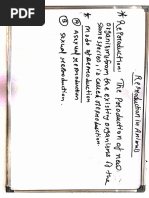 Reproduction in Animals
* Reproduction: The Production of new
organism from the existing organisms of the
same species, is called reproduction.
* Mode of Reproduction
① Asexual reproduction.
② Sexual reproduction.